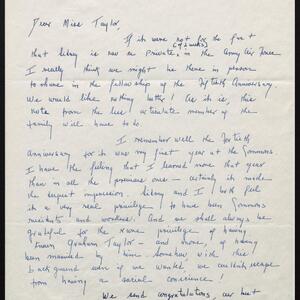 Dear Miss Taylor,
If it were not for the fact
(of 2 weeks)
that Sidney is now a Private in the Army Air Force
I really think we might be there in person
to share in the fellowship of the Fiftieth Anniversary.
We would like nothing better. As it is, this
note from the less articulate member of the
family will have to do.
I remember well the Fortieth
Anniversary for it was my first year at the Commons
I have the feeling that I learned more that year
than in all the previous ones - certainly it made
the deepest impression. Sidney and I both feel
it a very real privilege to have been Commons
residents and workers. And we shall always be
grateful for the rare privilege of having
known Graham Taylor - and, more, of having
been married by him. Somehow, with this
background even if we wanted, we couldn't escape
from having a social conscience!
We send congratulations, our best